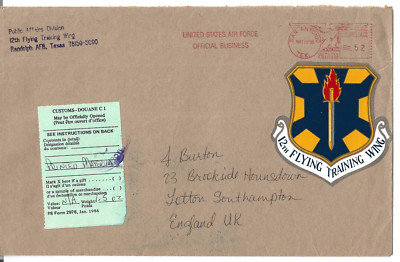 Public Affairs Division
12th Flying Training Wing
Randolph AFB, Texas
UNITED STATES AIR FORCE
OFFICIAL BUSINESS
CUSTOMS-DOUANE C 1
May be Officially Opened
(Peut être ouvert d'office)
SEE INSTRUCTIONS ON BACK
Contents in detail:
Désignation détaillée
du contenu:
Mark X here if a gift ( )
Il s'agit d'un cadeau
or a sample of merchandise ( )
d'un échantillon de marchandises
Value: N/A
PS Form 2976, Jan. 1984
12TH FLYING TRAINING WING
J. Burton
23 Brookside Hounsdown
Totton Southampton
England UK